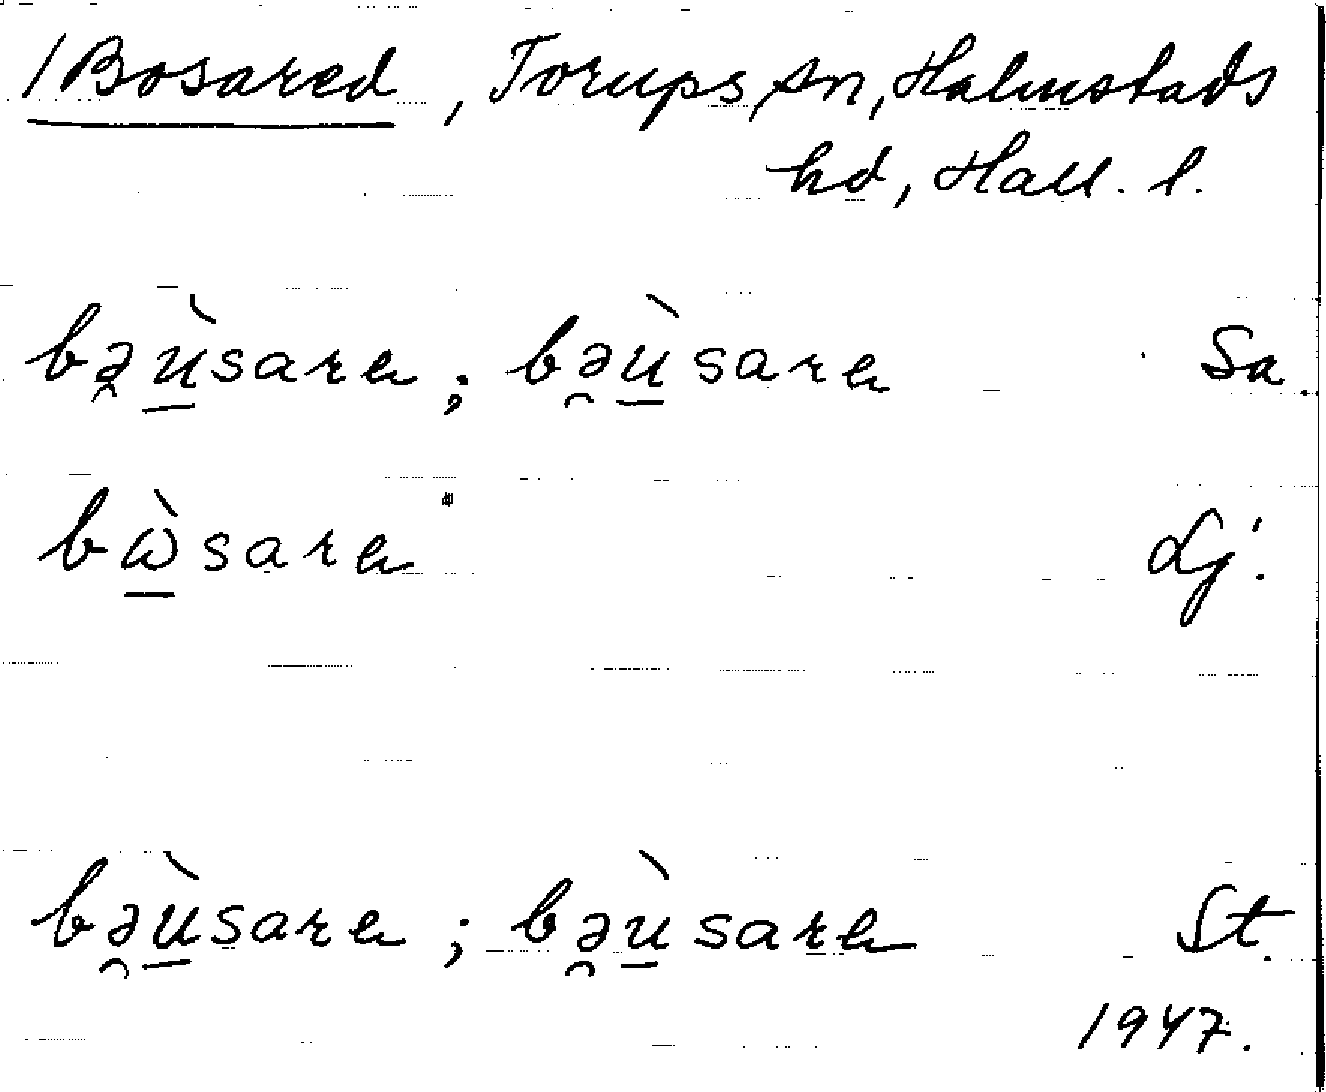 /Bosared, Torups sn, Halmstads
hd, Hall. l.
bə̯ù̱sarɐ; bə̯ù̱sarɐ Sa.
bὼ̱sarɐ Lj.
bə̯ù̱sarɐ; bə̯ù̱sarɐ St.
1947.